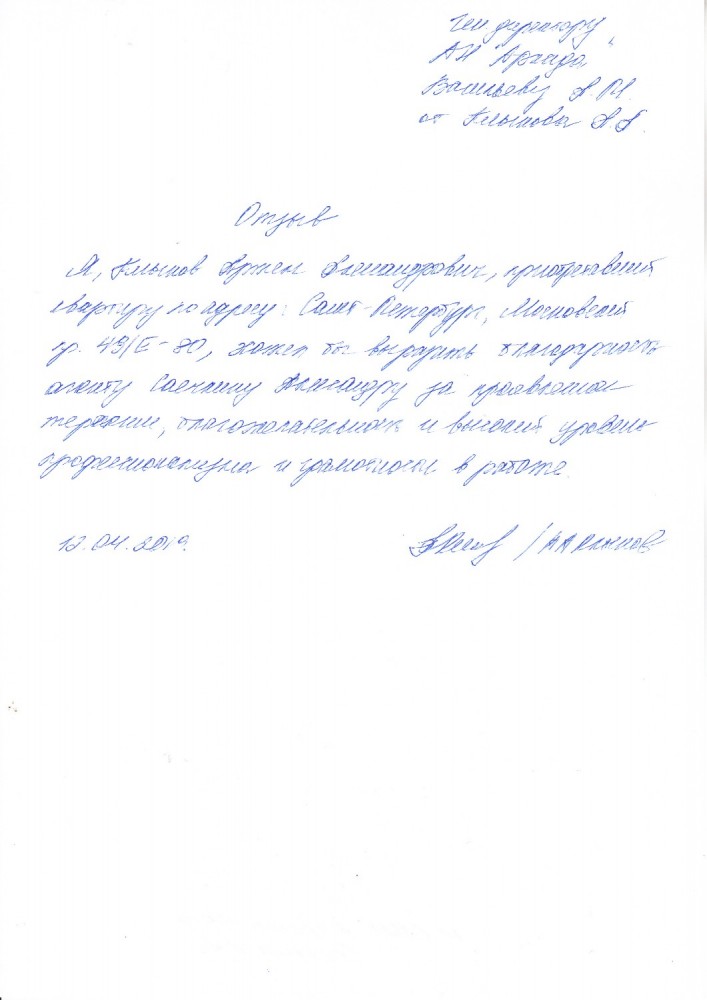 Ген директору
АН "Аркада"
Васильеву А.
от Клыкова А.
Отзыв
Я, Клыков Александрович, приобретавший
квартиру по адресу: Санкт-Петербург, Московский
пр. 49/Е-80, хотел бы выразить благодарность
агенту Александру за проявленное
терпение, благожелательность и высокий уровень
профессионализма и грамотности в работе.
12.04.2019
/ АА Клыков